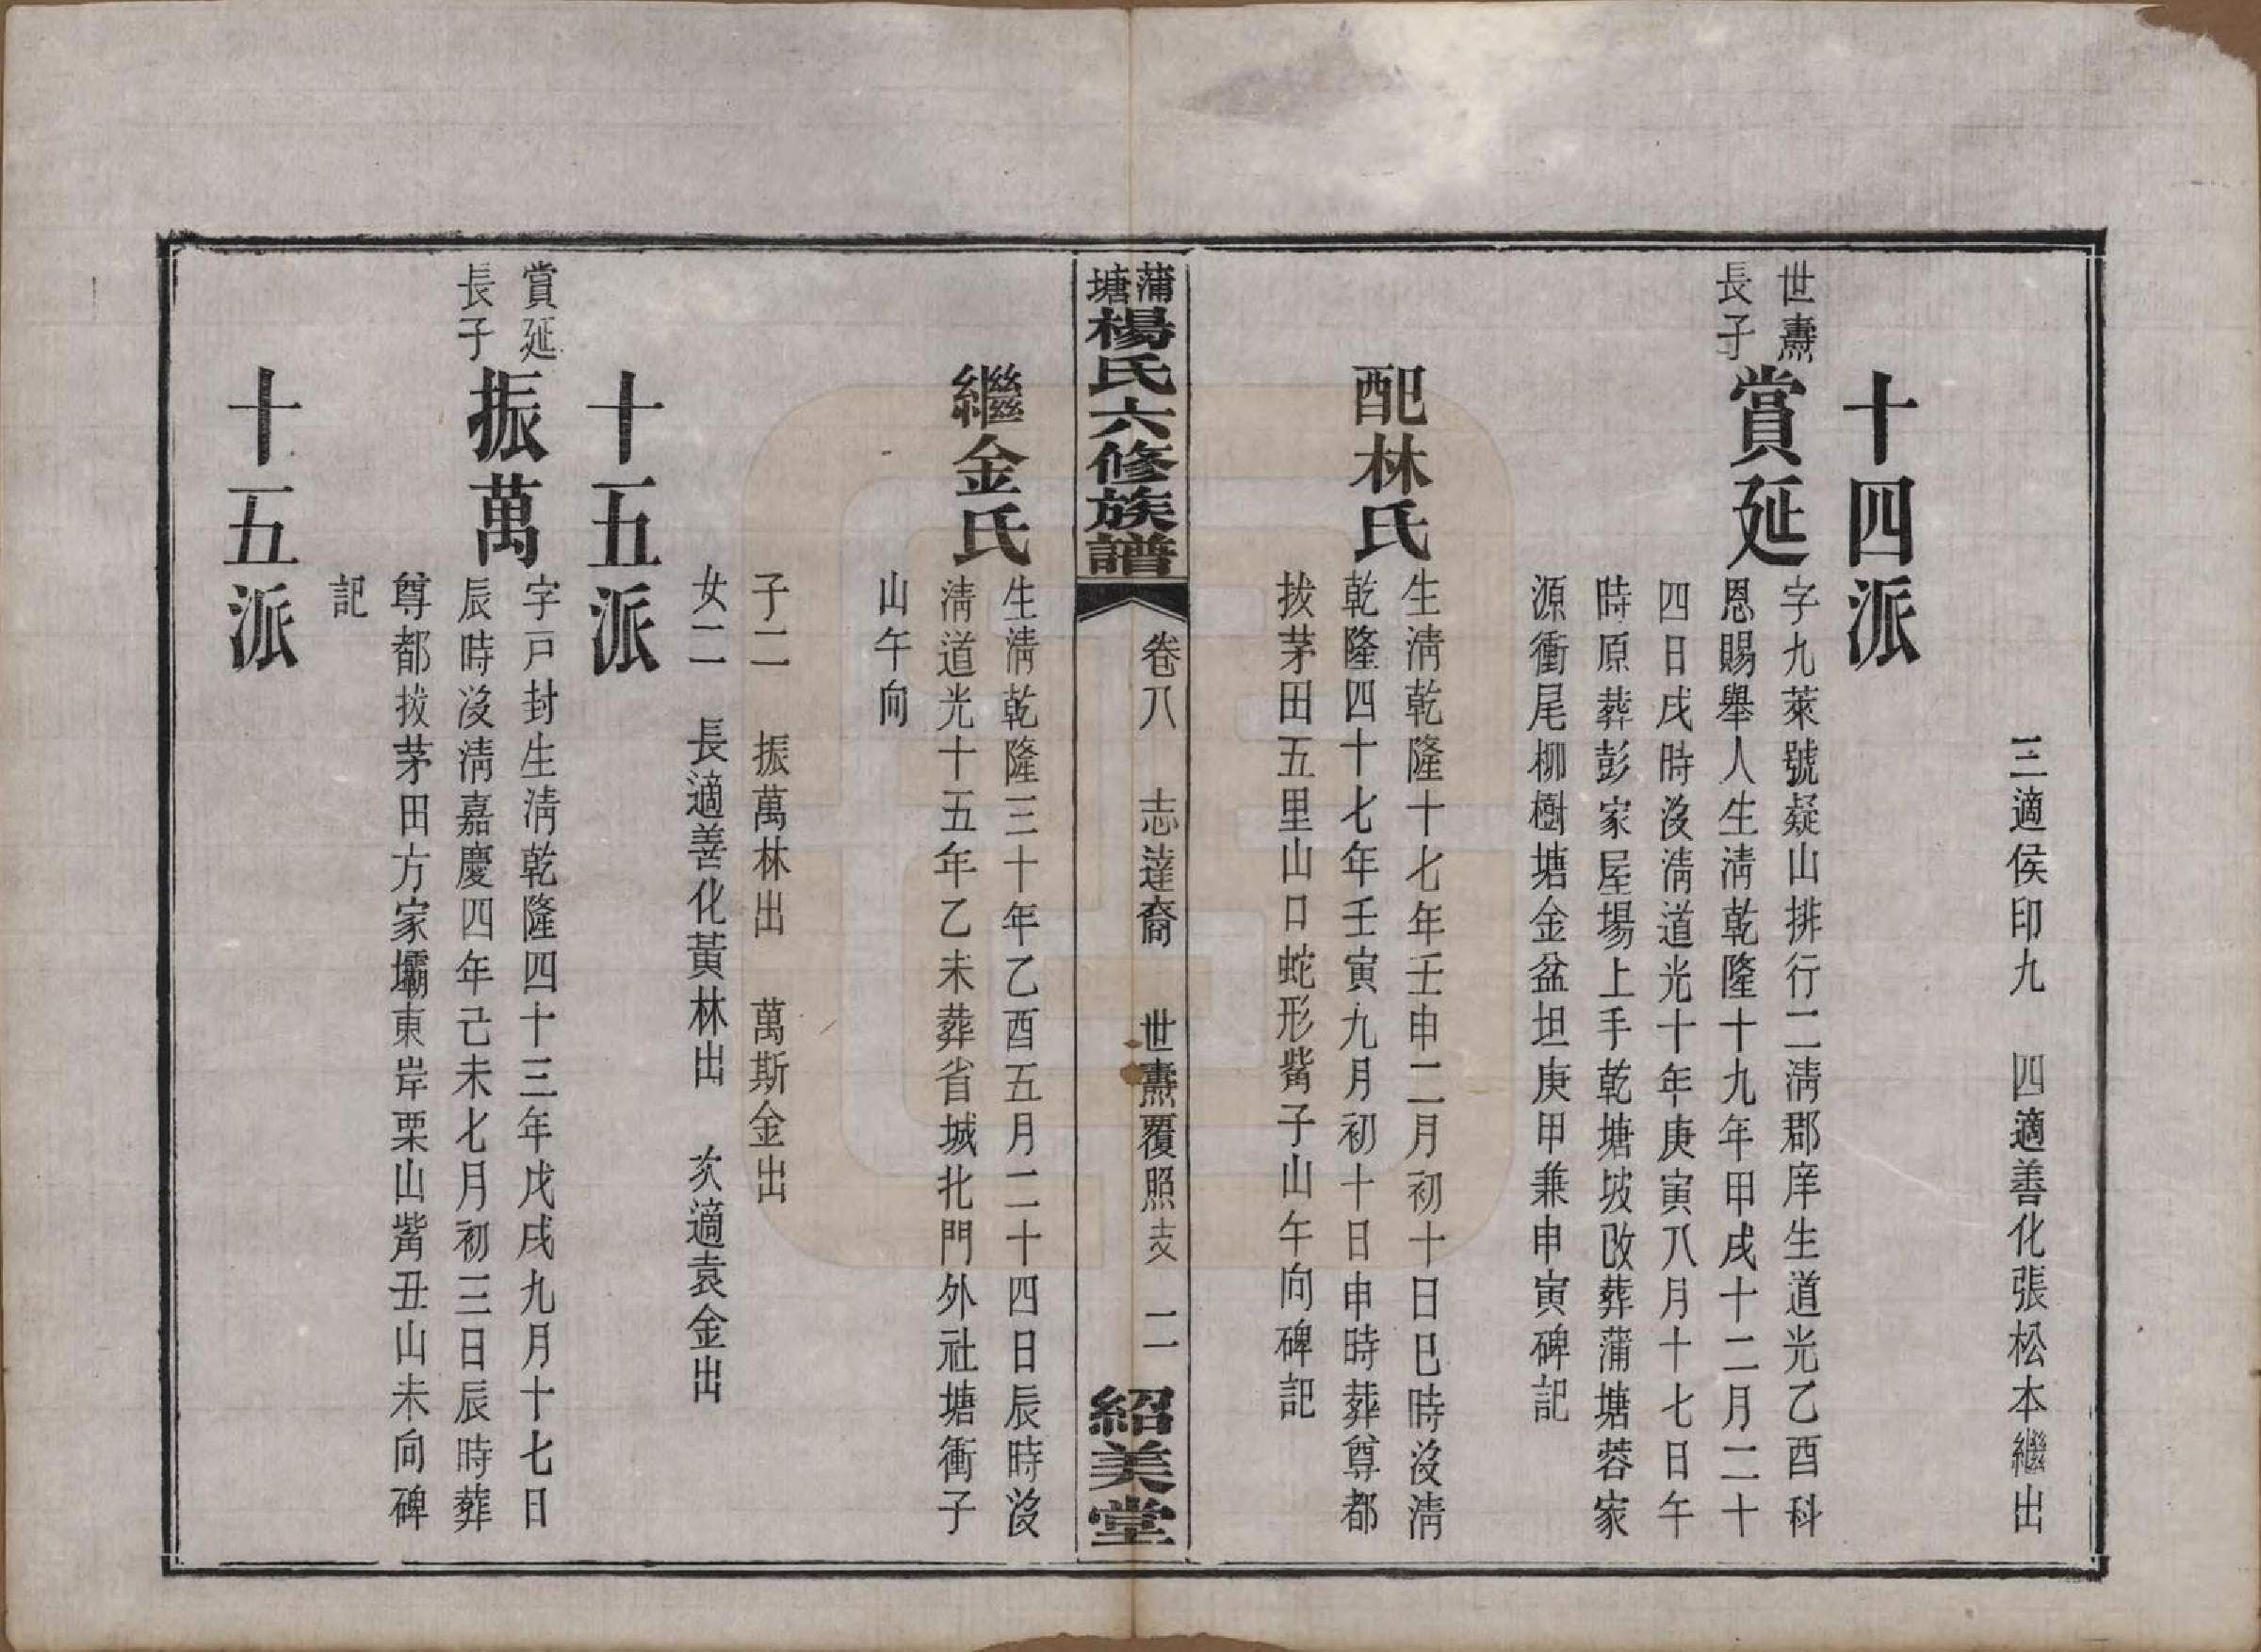 三適侯印九　四適善化張松本繼出
十四派
世燾
長子
賞延
字九萊號疑山排行二淸郡庠生道光乙酉科
恩賜舉人生淸乾隆十九年甲戌十二月二十
四日戌時沒淸道光十年庚寅八月十七日午
時原葬彭家屋場上手乾塘坡改葬蒲塘蓉家
源衝尾柳樹塘金盆坦庚甲兼申寅碑記
配林氏
生淸乾隆十七年壬申二月初十日巳時沒淸
乾隆四十七年壬寅九月初十日申時葬尊都
拔茅田五里山口蛇形觜子山午向碑記
蒲塘楊氏六修族譜
卷八　志達裔　世燾覆照支　二
紹美堂
繼金氏
生淸乾隆三十年乙酉五月二十四日辰時沒
淸道光十五年乙未葬省城北門外社塘衝子
山午向
子二　振萬林出　萬斯金出
女二　長適善化黃林出　次適袁金出
十五派
賞延
長子
振萬
字戸封生淸乾隆四十三年戊戌九月十七日
辰時沒淸嘉慶四年己未七月初三日辰時葬
尊都拔茅田方家壩東岸栗山觜丑山未向碑
記
十五派